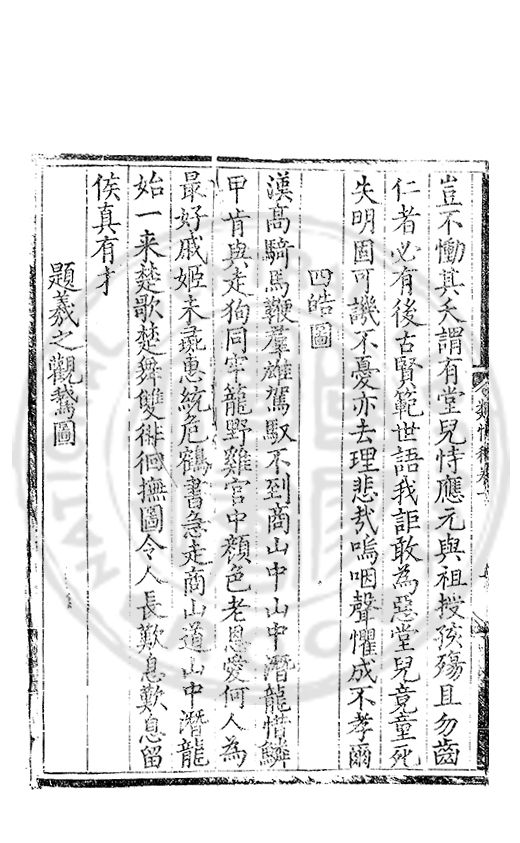 豈不慟其夭謂有堂兒恃應元與祖授孩殤且勿齒
仁者必有後古賢範世語我詎敢為惡堂兒竟童死
失明固可譏不憂亦去理悲哉嗚咽聲懼成不孝爾
四皓圖
漢高騎馬鞭羣雄駕馭不到商山中山中潛龍惜鱗
甲肯與走狗同牢籠野雞宮中顏色老恩愛何人為
最好戚姬未彘惠統危鶴書急走商山道山中潛龍
始一来楚歌楚舞雙徘徊撫圖令人長歎息歎息留
侯真有才
題羲之觀鵞圖